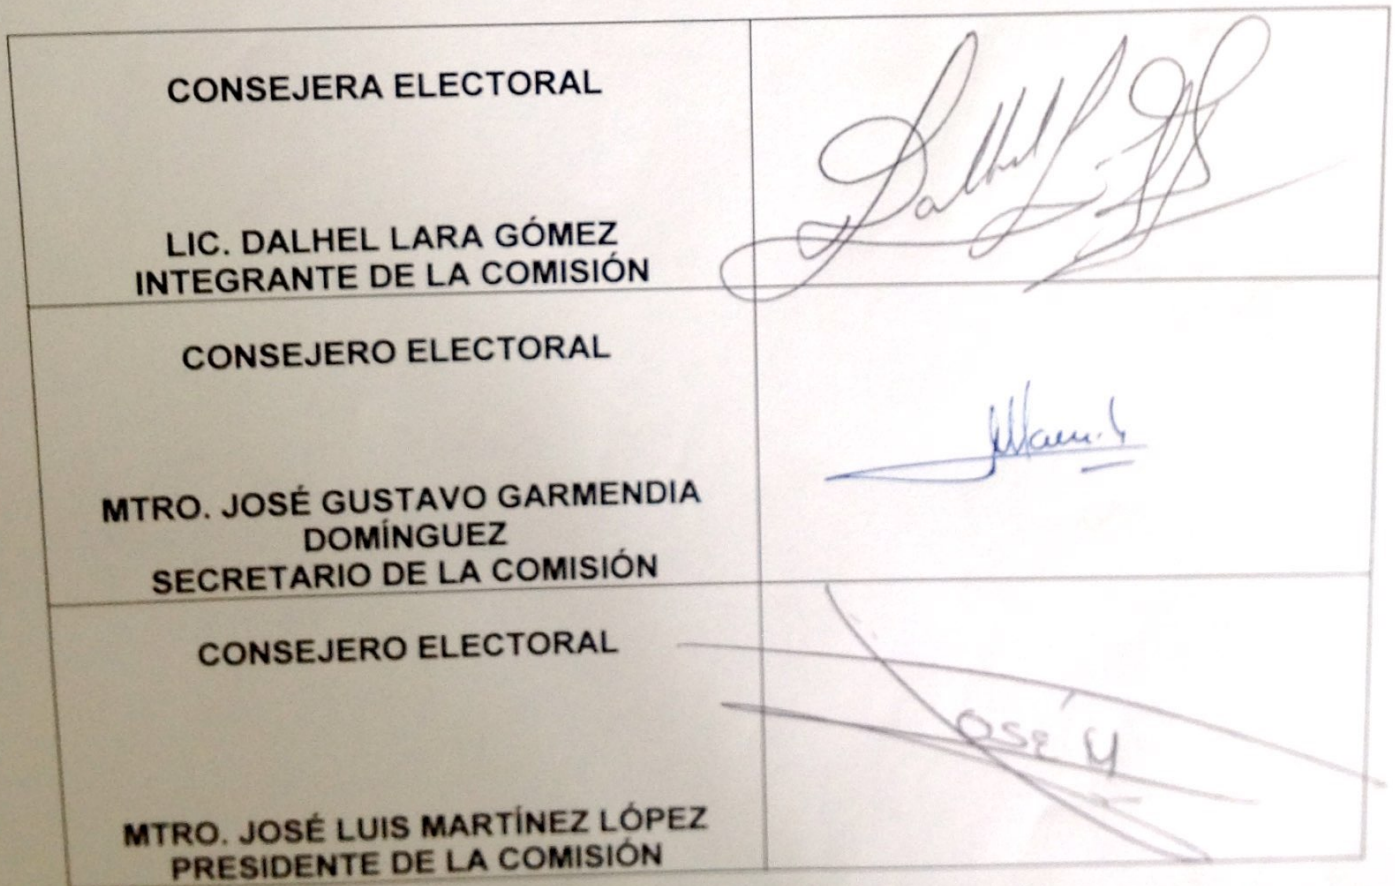 CONSEJERA ELECTORAL
LIC. DALHEL LARA GÓMEZ
INTEGRANTE DE LA COMISIÓN
Dalhel
CONSEJERO ELECTORAL
MTRO. JOSÉ GUSTAVO GARMENDIA
DOMÍNGUEZ
SECRETARIO DE LA COMISIÓN
CONSEJERO ELECTORAL
MTRO. JOSÉ LUIS MARTÍNEZ LÓPEZ
PRESIDENTE DE LA COMISIÓN
OSE M